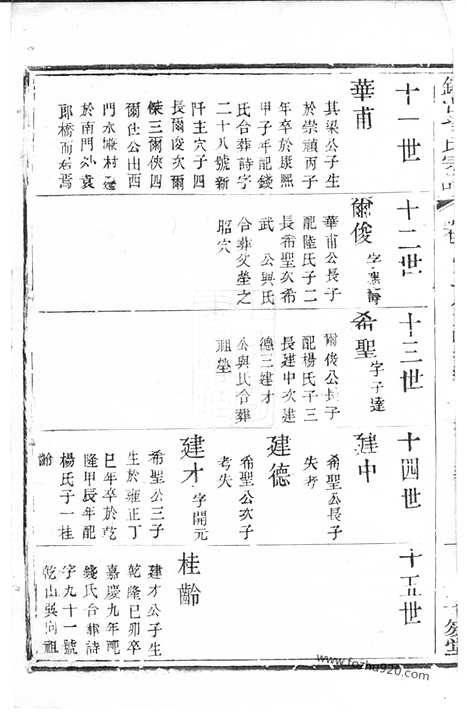 十一世
華甫
其梁公子生
於崇禎丙子
年卒於康熙
甲子年配錢
氏合葬詩字
二十八號新
阡主穴子四
長爾俊次爾
傑三爾俠四
爾仕公由西
門水
村遷
於南門外袁
郎橋而
焉
十二世
爾俊
華甫公長子
配陸氏子二
長希聖次希
武 公與氏
合葬父塋之
昭穴
十三世
希聖 字子達
爾俊公長子
配楊氏子三
長建中次建
德三建才
公與氏合葬
祖塋
十四世
建中
希聖公長子
失考
建德
希聖公次子
考失
建才 字開元
希聖公三子
生於雍正丁
巳年卒於乾
隆甲辰年配
楊氏子一桂
齡
十五世
桂齡
建才公子生
乾隆己卯卒
嘉慶九年配
錢氏合葬詩
字九十一號
乾山吳向祖
www.fozhu920.com